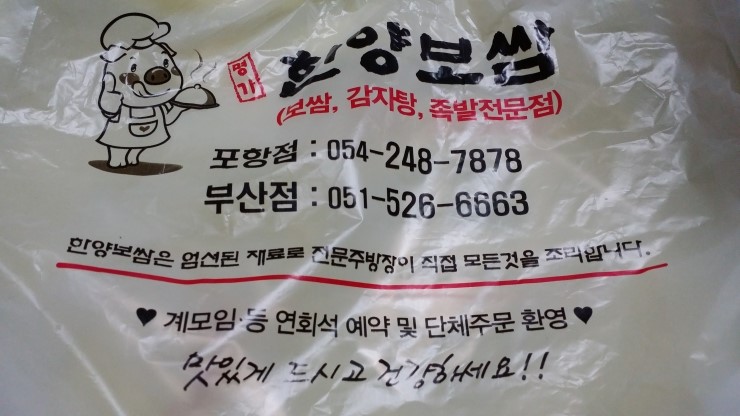 명가 한양보쌈
(보쌈, 감자탕, 족발전문점)
포항점 : 054-248-7878
부산점 : 051-526-6663
한양보쌈은 엄선된 재료로 전문주방장이 직접 모든것을 조리합니다.
♥ 계모임·등 연회석 예약 및 단체주문 환영 ♥
맛있게 드시고 건강하세요!!